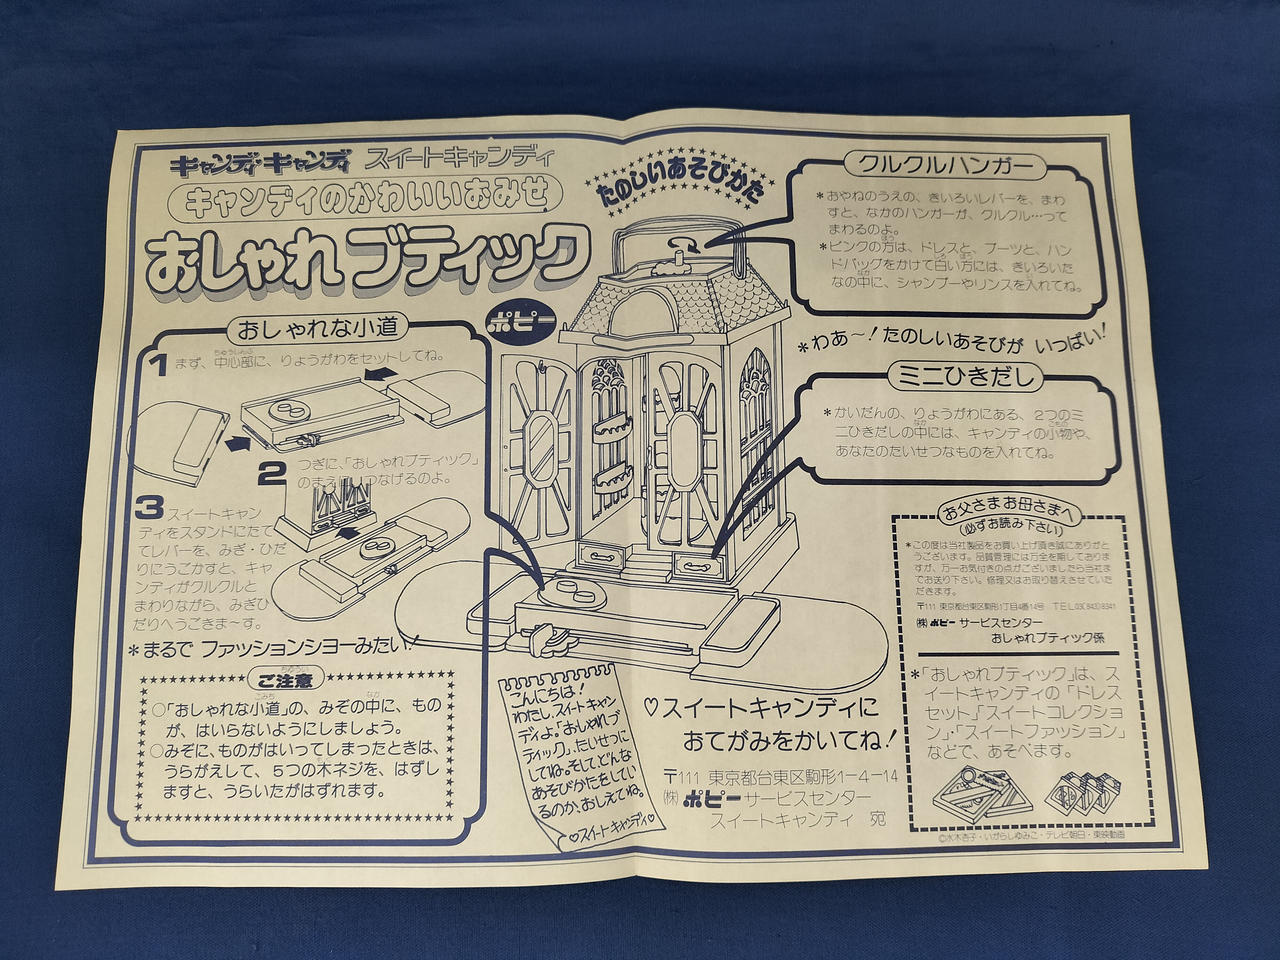 キャンディ・キャンディ スイートキャンディ
キャンディのかわいいおみせ
おしゃれブティック
たのしいあそびかた
ポピー
おしゃれな小道
1 まず、中心部に、りょうがわをセットしてね。
ちゅうしんぶ
2 つぎに、「おしゃれブティック」
のまえに、つなげるのよ。
3 スイートキャン
ディをスタンドにたて
てレバーを、みぎ・ひだ
りにうごかすと、キャ
ンディがクルクルと
まわりながら、みぎひ
だりへうごきま〜す。
*まるで ファッションショーみたい!
ちゅうい
ご注意
○「おしゃれな小道」の、みぞの中に、もの
が、はいらないようにしましょう。
○みぞに、ものがはいってしまったときは、
うらがえして、5つの木ネジを、はずし
ますと、うらいたがはずれます。
クルクルハンガー
*おやねのうえの、きいろいレバーを、まわ
すと、なかのハンガーが、クルクル…って
まわるのよ。
*ピンクの方は、ドレスと、ブーツと、ハン
ドバッグをかけて白い方には、きいろいた
なの中に、シャンプーやリンスを入れてね。
*わあ〜!たのしいあそびが いっぱい!
ミニひきだし
*かいだんの、りょうがわにある、2つのミ
ニひきだしの中には、キャンディの小物や、
あなたのたいせつなものを入れてね。
お父さまお母さまへ
(必ずお読み下さい)
*この度は当社製品をお買い上げ頂き誠にありがと
うございます。品質管理には万全を期しておりま
すが、万一お気付きの点がございましたら当社ま
でお送り下さい。修理又はお取り替えさせていた
だきます。
〒111 東京都台東区駒形1丁目4番14号 TEL.03(843)8341
(株)ポピー サービスセンター
おしゃれブティック係
*「おしゃれブティック」は、ス
イートキャンディの「ドレス
セット」「スイートコレクショ
ン」・「スイートファッション」
などで、あそべます。
©水木杏子・いがらしゆみこ・テレビ朝日・東映動画
こんにちは!
わたし、スイートキャン
ディよ。「おしゃれブ
ティック」、たいせつに
してね。そして、どんな
あそびかたをしてい
るのか、おしえてね。
♡スイートキャンディ♡
♡スイートキャンディに
おてがみをかいてね!
〒111 東京都台東区駒形1-4-14
(株)ポピーサービスセンター
スイートキャンディ 宛